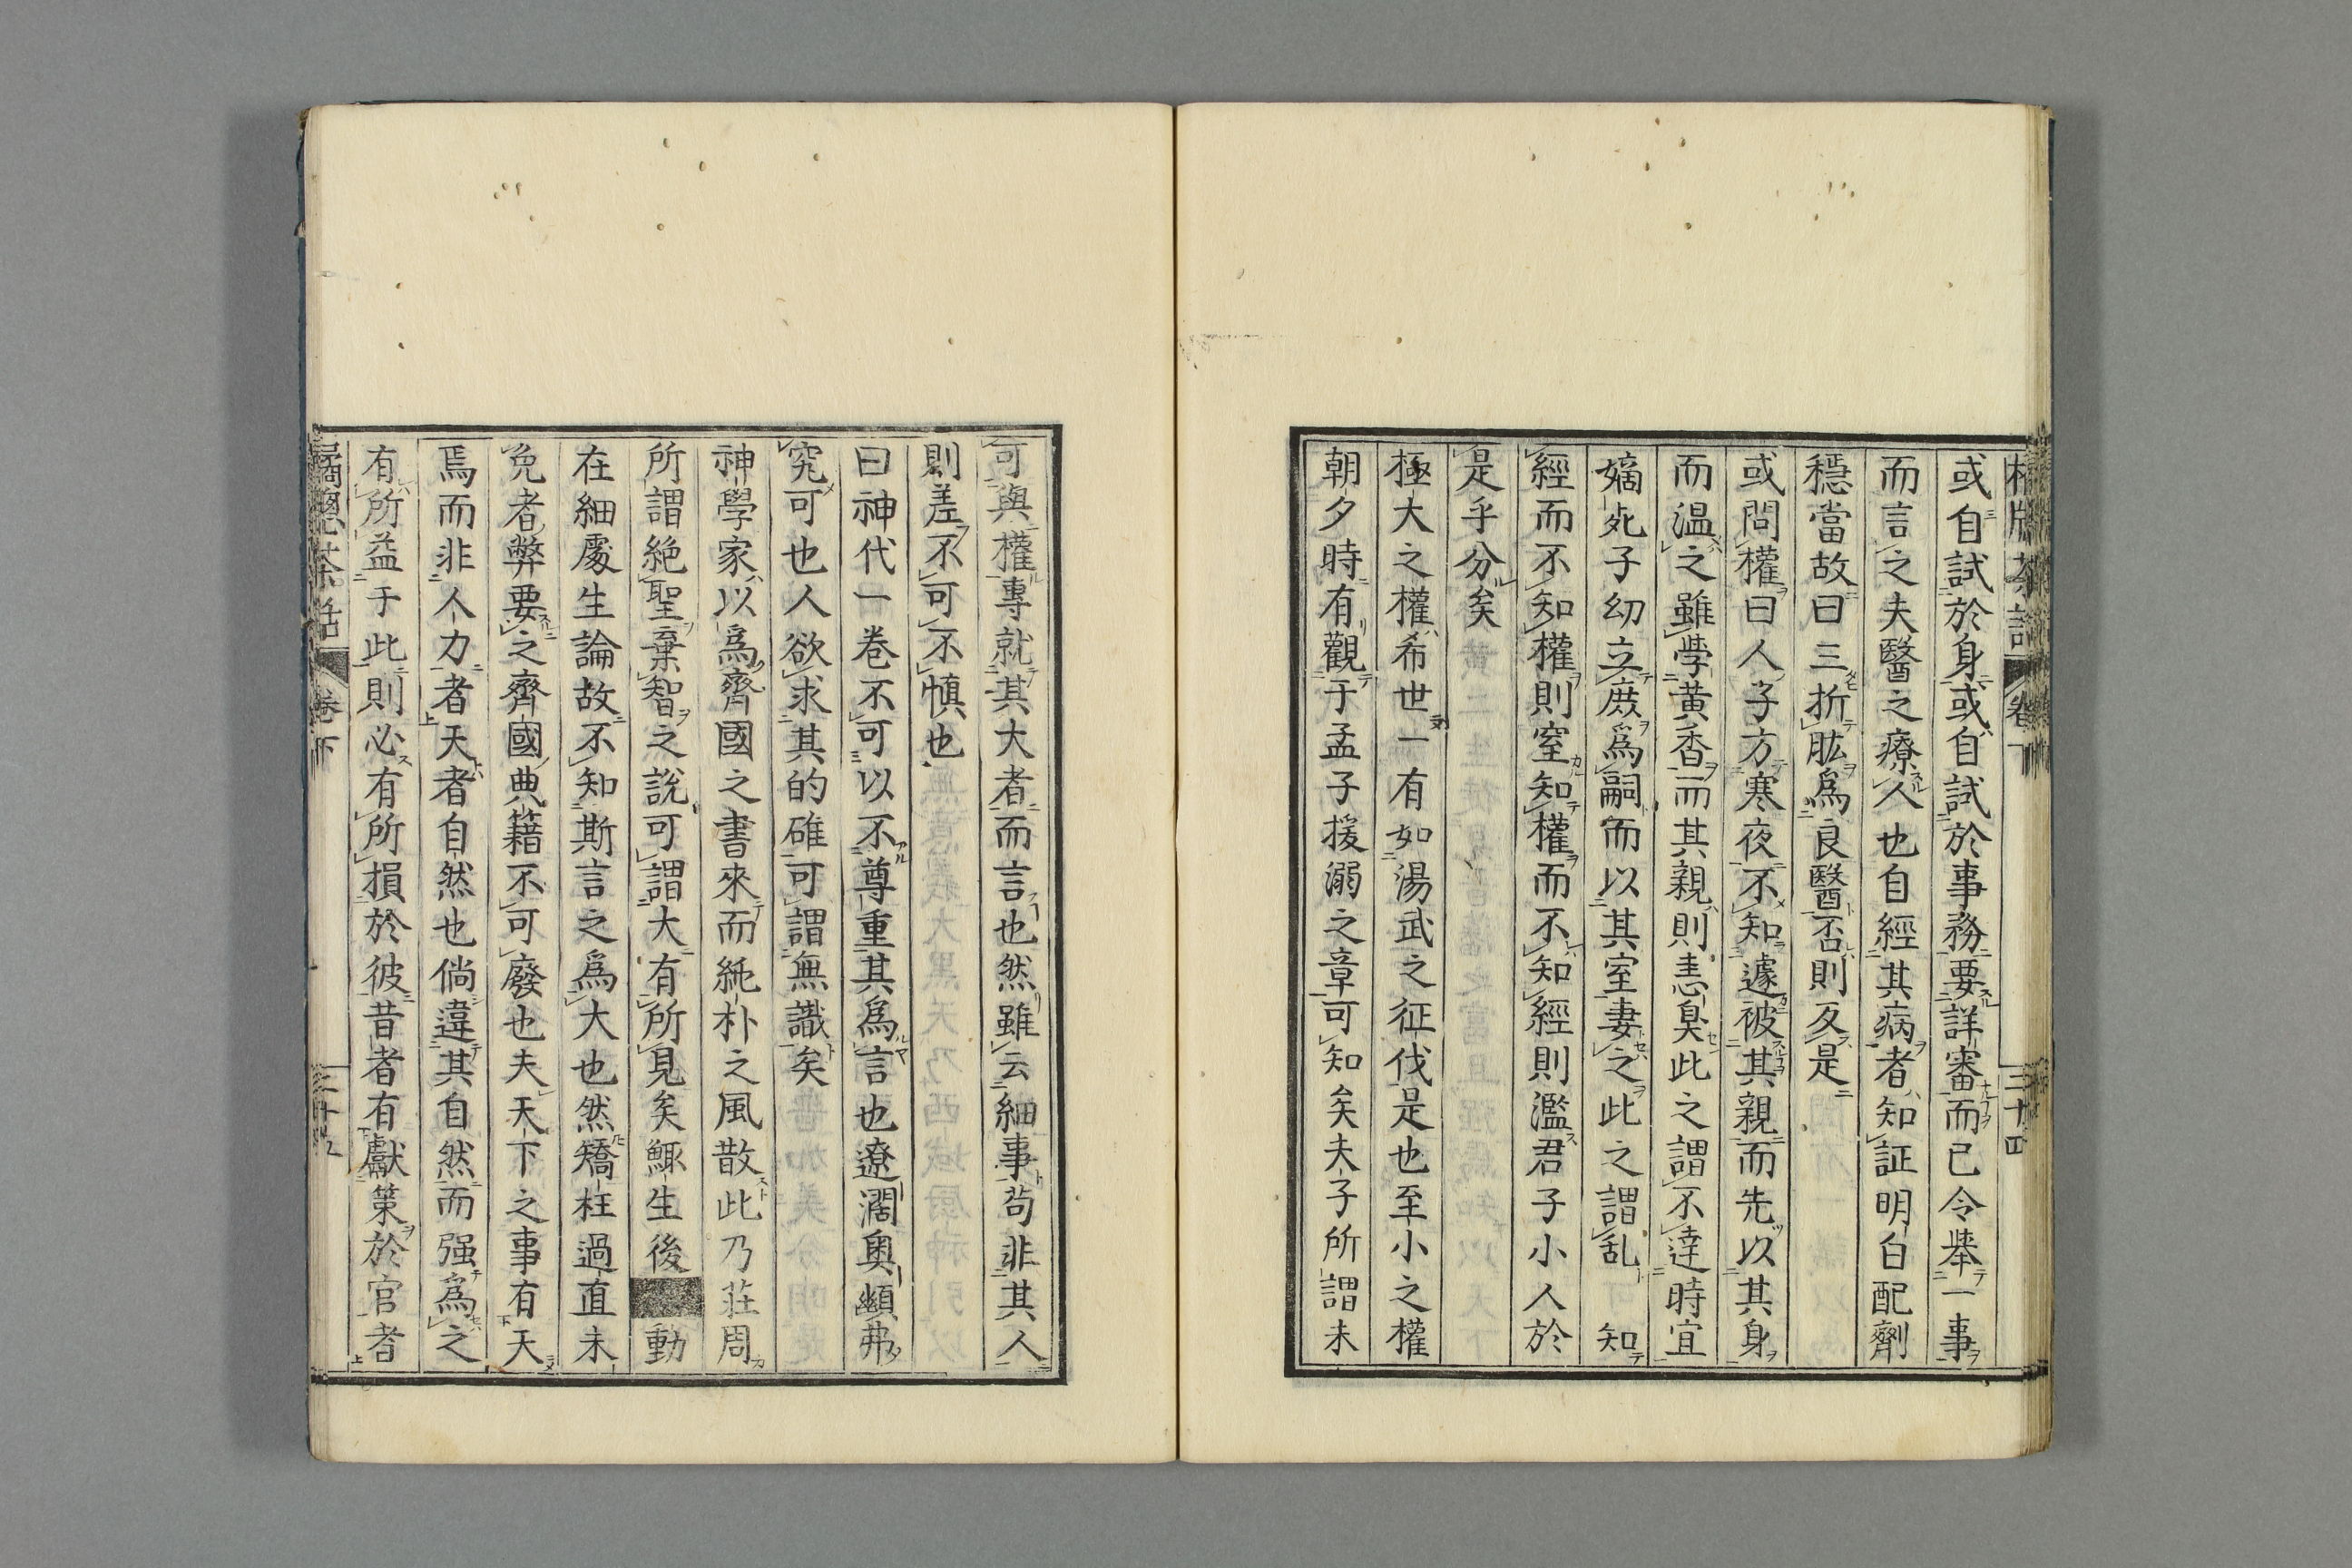 或自試於身或自試於事務要詳審而已令舉一事
而言之夫醫之療人也自經其病者知証明白配劑
穩當故曰三折肱爲良醫否則反是
或問權曰人子方寒夜不知遽被其親而先以其身
而温之雖學黄香而其親則恚臭此之謂不達時宜
嫡死子幼立庶爲嗣而以其室妻之此之謂乱知
經而不知權則窒知權而不知經則濫君子小人於
是乎分矣
極大之權希世一有如湯武之征伐是也至小之權
朝夕時有觀于孟子援溺之章可知矣夫子所謂未
可與權專就其大者而言也然雖云細事苟非其人
則差不可不慎也
曰神代一卷不可以不尊重其爲言也遼濶奥 弗
究可也人欲求其的碓可謂無識矣
神學家以爲齊國之書來而純朴之風散此乃莊周
所謂絶聖棄智之說可謂大有所見矣鯫生後 動
在細處生論故不知斯言之爲大也然矯枉過直未
免者弊要之齊國典籍不可廢也夫天下之事有天
焉而非人力者天者自然也倘違其自然而强爲之
有所益于此則必有所損於彼昔者有獻策於官者
橘 茶話 卷下